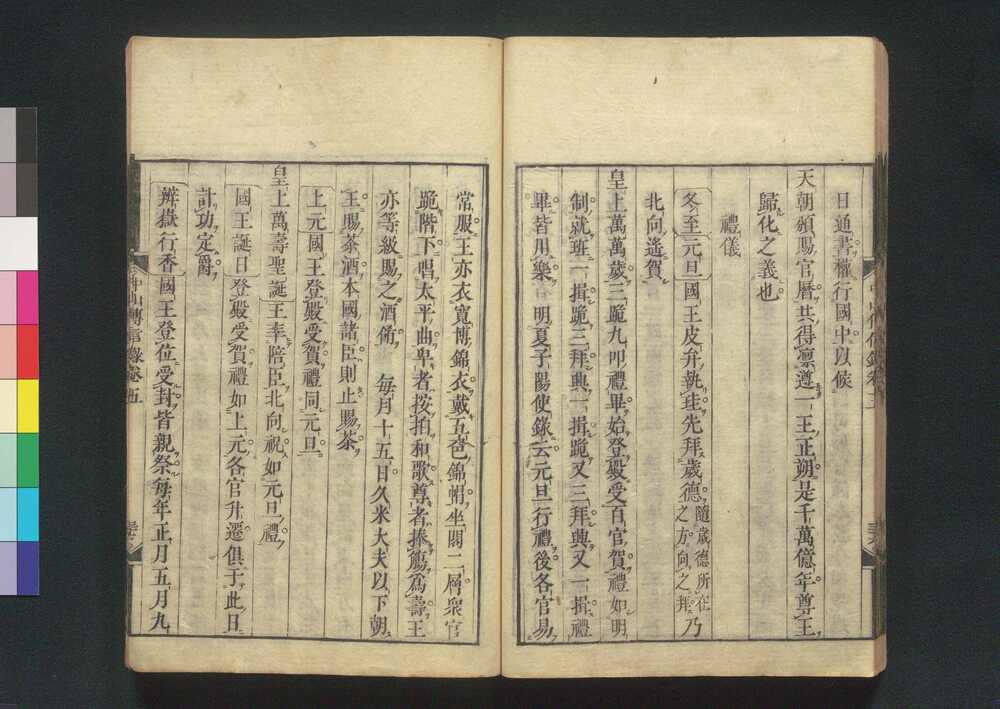 日通書權行國中以候
天朝頒賜官曆共得凛遵一王正朔是千萬億年尊王
歸化之義也
禮儀
冬至元旦國王皮弁執珪先拜歲德隨歲德所在之方向之拜乃
北向遙賀
皇上萬萬歲三跪九叩禮畢始登殿受百官賀禮如明
制就班一揖跪三拜興一揖跪又三拜興又一揖禮
畢皆用樂 明夏子陽使錄云元旦行禮後各官易
常服王亦衣寬博錦衣戴五色錦帽坐閣二層衆官
跪階下唱太平曲卑者按拍和歌尊者捧觴爲壽王
亦等級賜之酒殽 每月十五日久米大夫以下朝
王賜茶酒本國諸臣則止賜茶
上元國王登殿受賀禮同元旦
皇上萬壽聖誕王率陪臣北向祝如元旦禮
國王誕日登殿受賀禮如上元各官升遷俱于此日
計功定爵
辨嶽行香國王登位受封皆親祭每年正月五月九
中山傳信錄卷五